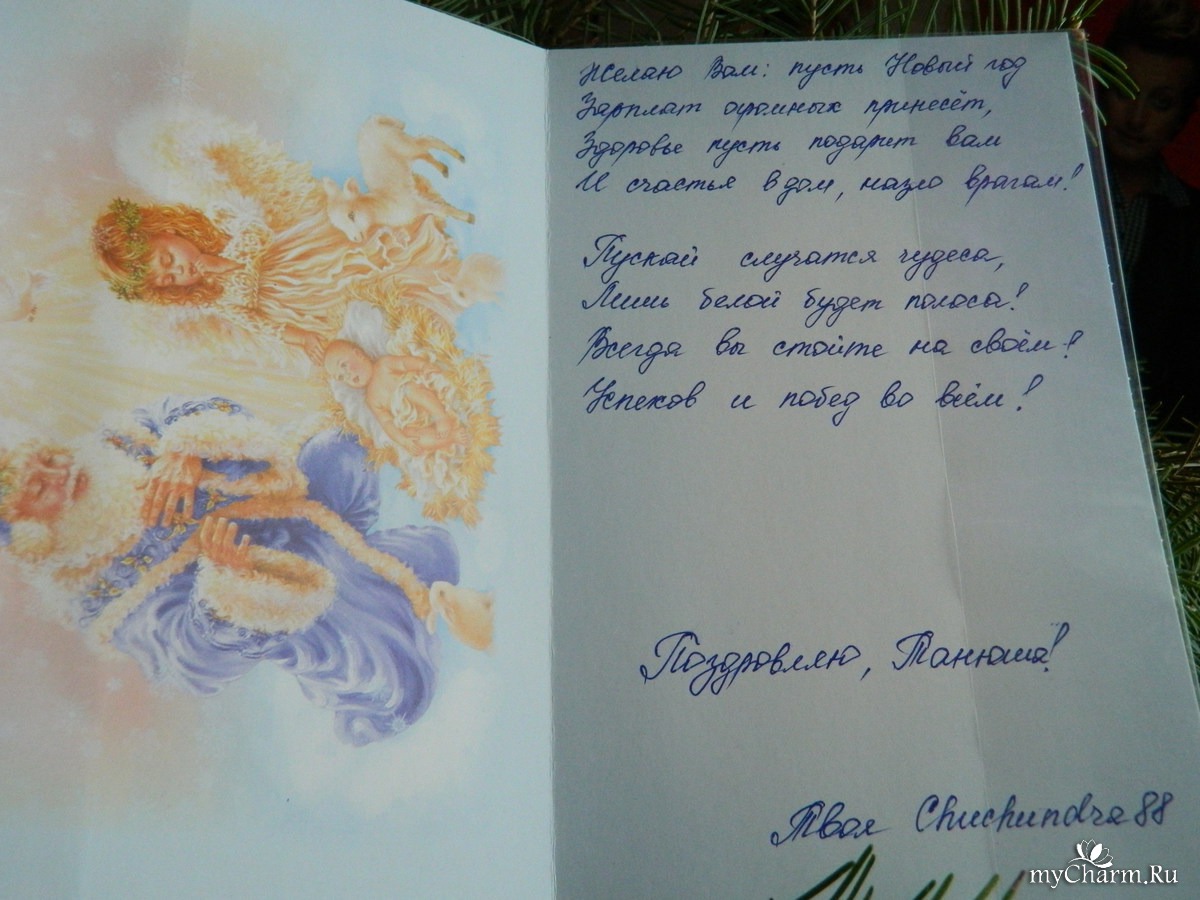 Желаю Вам: пусть Новый год
Зарплат огромных принесёт,
Здоровье пусть подарит вам
И счастья в дом, назло врагам!
Пускай случатся чудеса,
Лишь белой будет полоса!
Всегда вы стойте на своём!
Успехов и побед во всём!
Поздровляю, Танюша!
Твоя Chuchundra88
myCharm.Ru